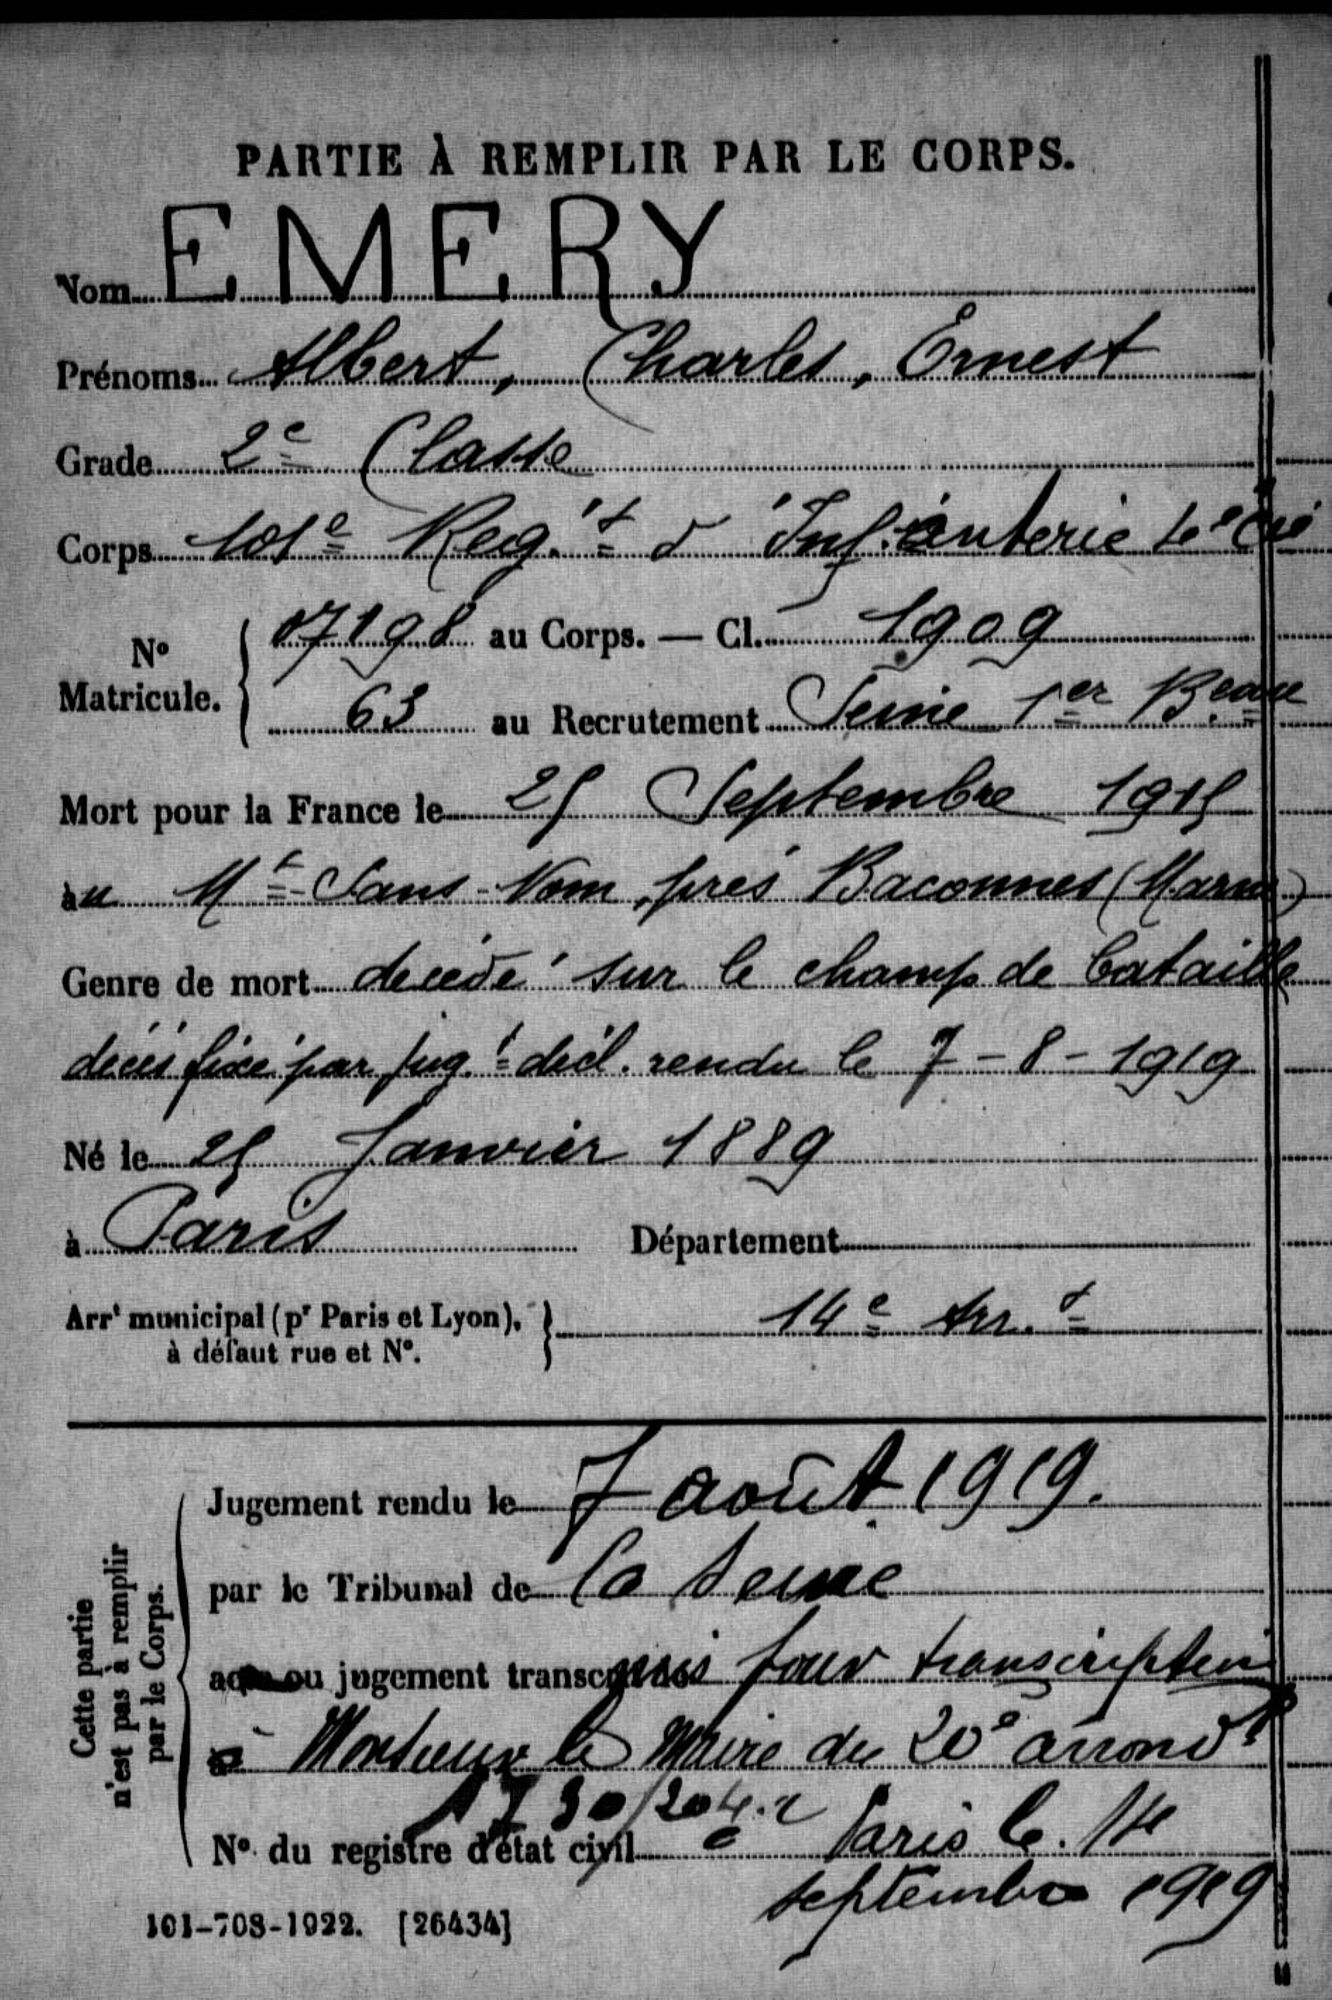 PARTIE À REMPLIR PAR LE CORPS.
Nom EMERY
Prénoms Albert, Charles, Ernest
Grade 2e Classe
Corps 101e Reg.t d'Infanterie 4e Cie
No Matricule. 07198 au Corps. — Cl. 1909
63 au Recrutement Seine 1er Beau
Mort pour la France le 25 Septembre 1915
au Mt-Sans-Nom, près Baconnes (Marne)
Genre de mort décédé sur le champ de bataille
décès fixé par jug.t décl. rendu le 7-8-1919
Né le 25 Janvier 1889
à Paris Département
Arrt municipal (pr Paris et Lyon), 14e Arr.t
à défaut rue et No.
Cette partie
n'est pas à remplir
par le Corps.
Jugement rendu le 7 août 1919.
par le Tribunal de la Seine
ou jugement pour transcription
à Monsieur le Maire du 20e arrondt
1730/204.
No du registre d'état civil Paris le 14
septembre 1919
101-708-1922. [26434]